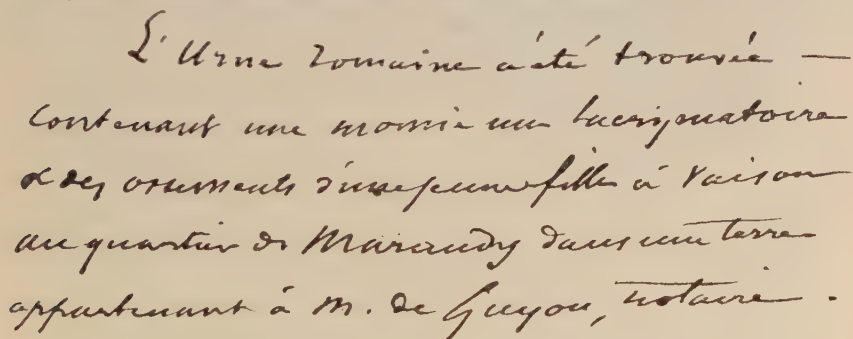 L'Urne romaine a été trouvée —
contenant une momie un lacrymatoire
& des ossements d'une jeune fille à Vaison
au quartier de Maraudy dans une terre
appartenant à M. de Guyon, notaire.